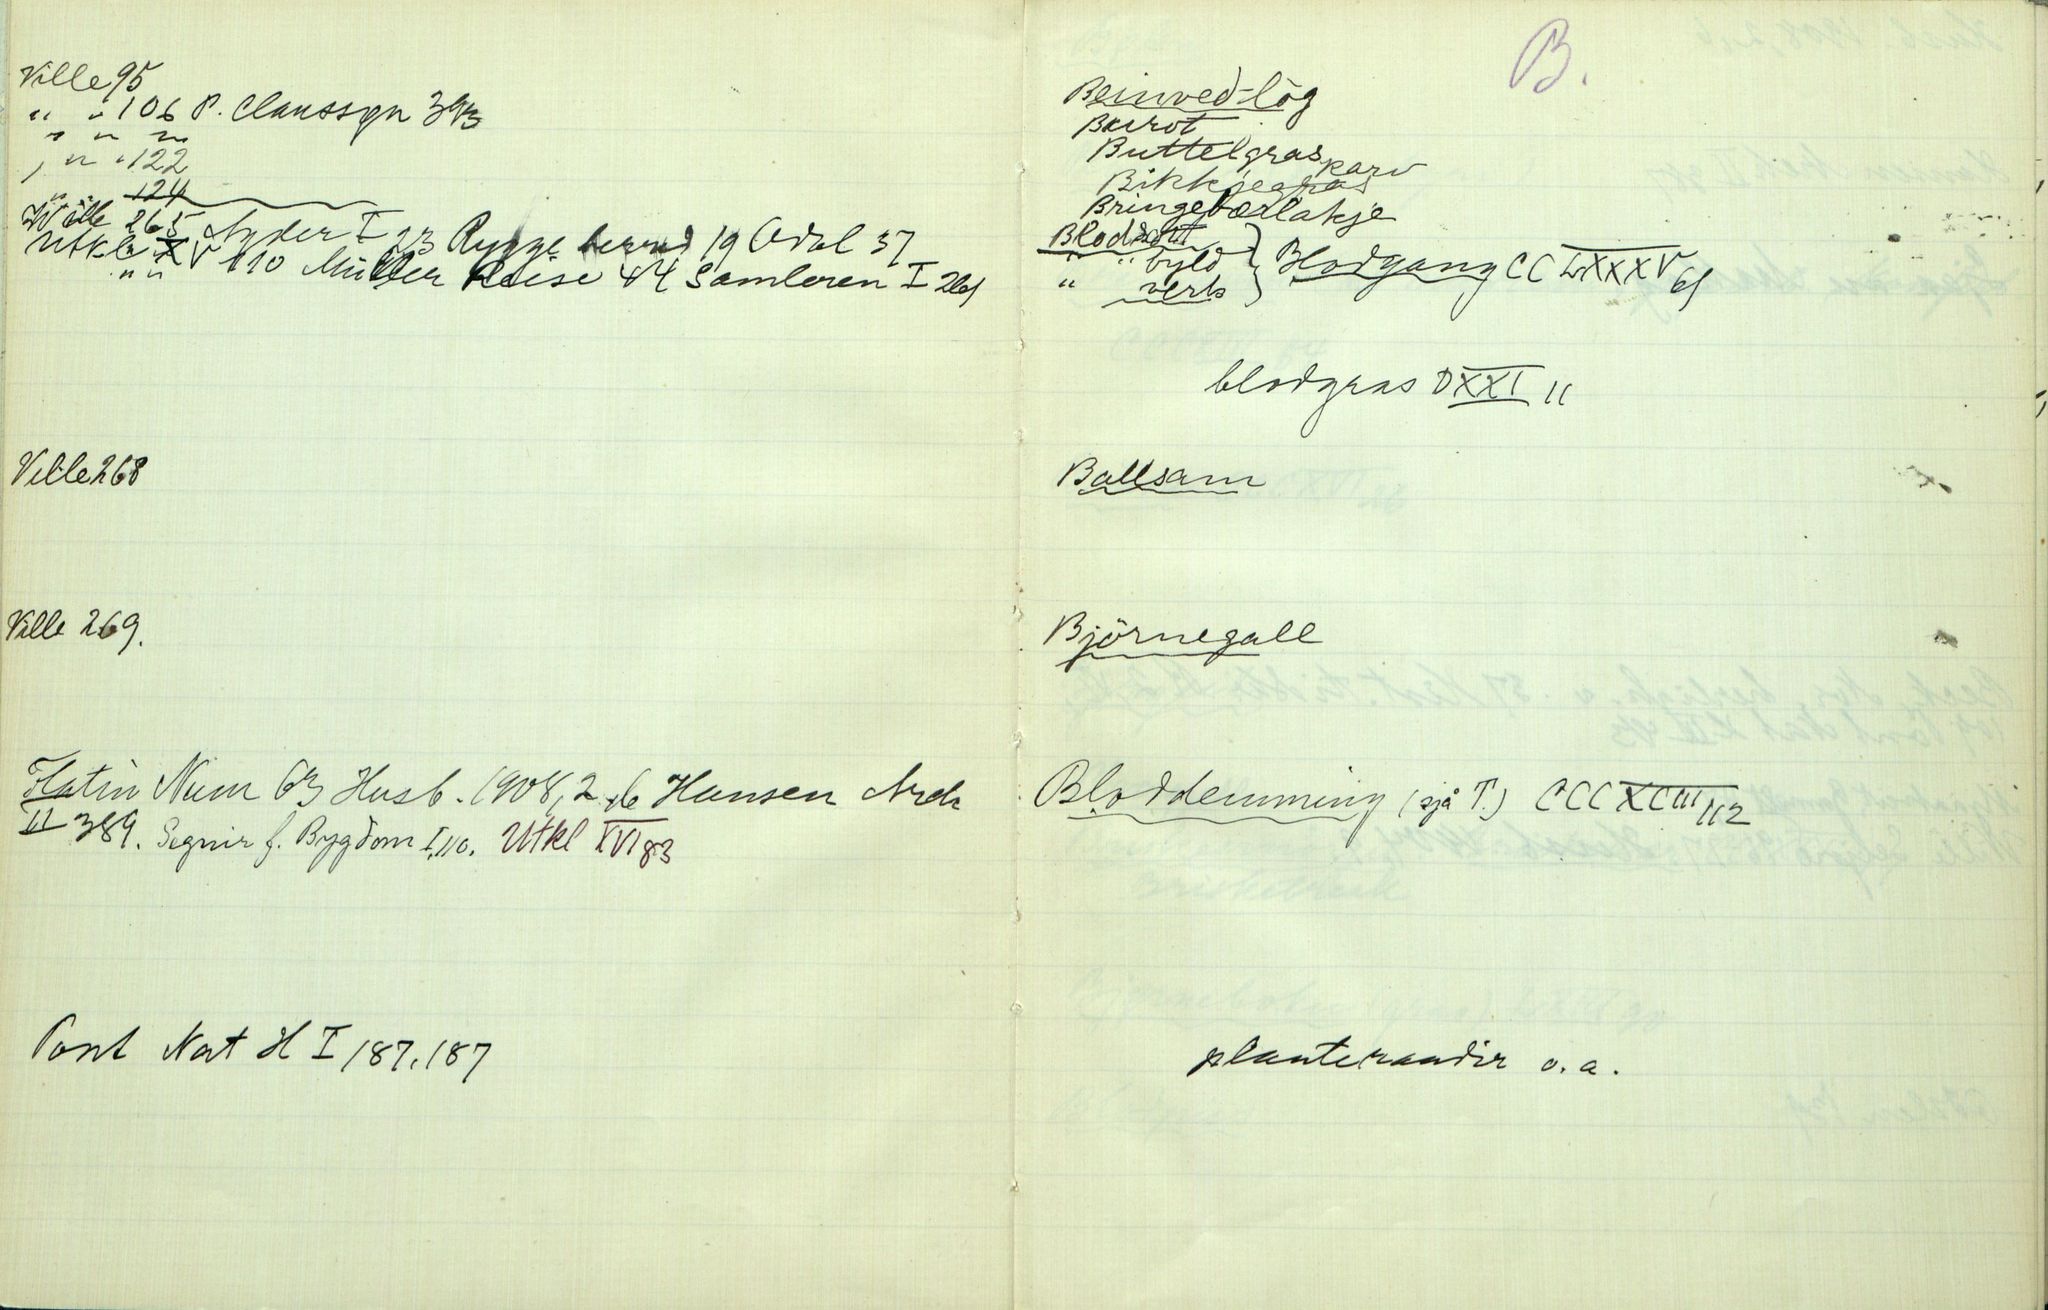 Ville 95
" " 106 P. Claussøn 343
" " "
, " " 122
" " 124
Wille 265 Nyder I 23 Rygge 19 Odal 37
Utkl XV 110 Müller Reise 44 Samleren I 261
" "
Ville 268
Ville 269.
Flatin Num 63 Husb. 1908, 2, 6 Hansen Arch
III 389. Segnir f. Bygdom I, 110. Utkl XVI 83
Pont Nat H I 187, 187
B.
Beinved-lög
Burot
Buttelgras
karv
Bikkjegras
Bringebærlakje
Blodsott
" " byld
" verk
Blodgang CCLXXXV 61
blodgras DXXI 11
Ballsam
Björnegall
Bloddemming (sjå T.) CCCXCIII 112
planterandir o. a.